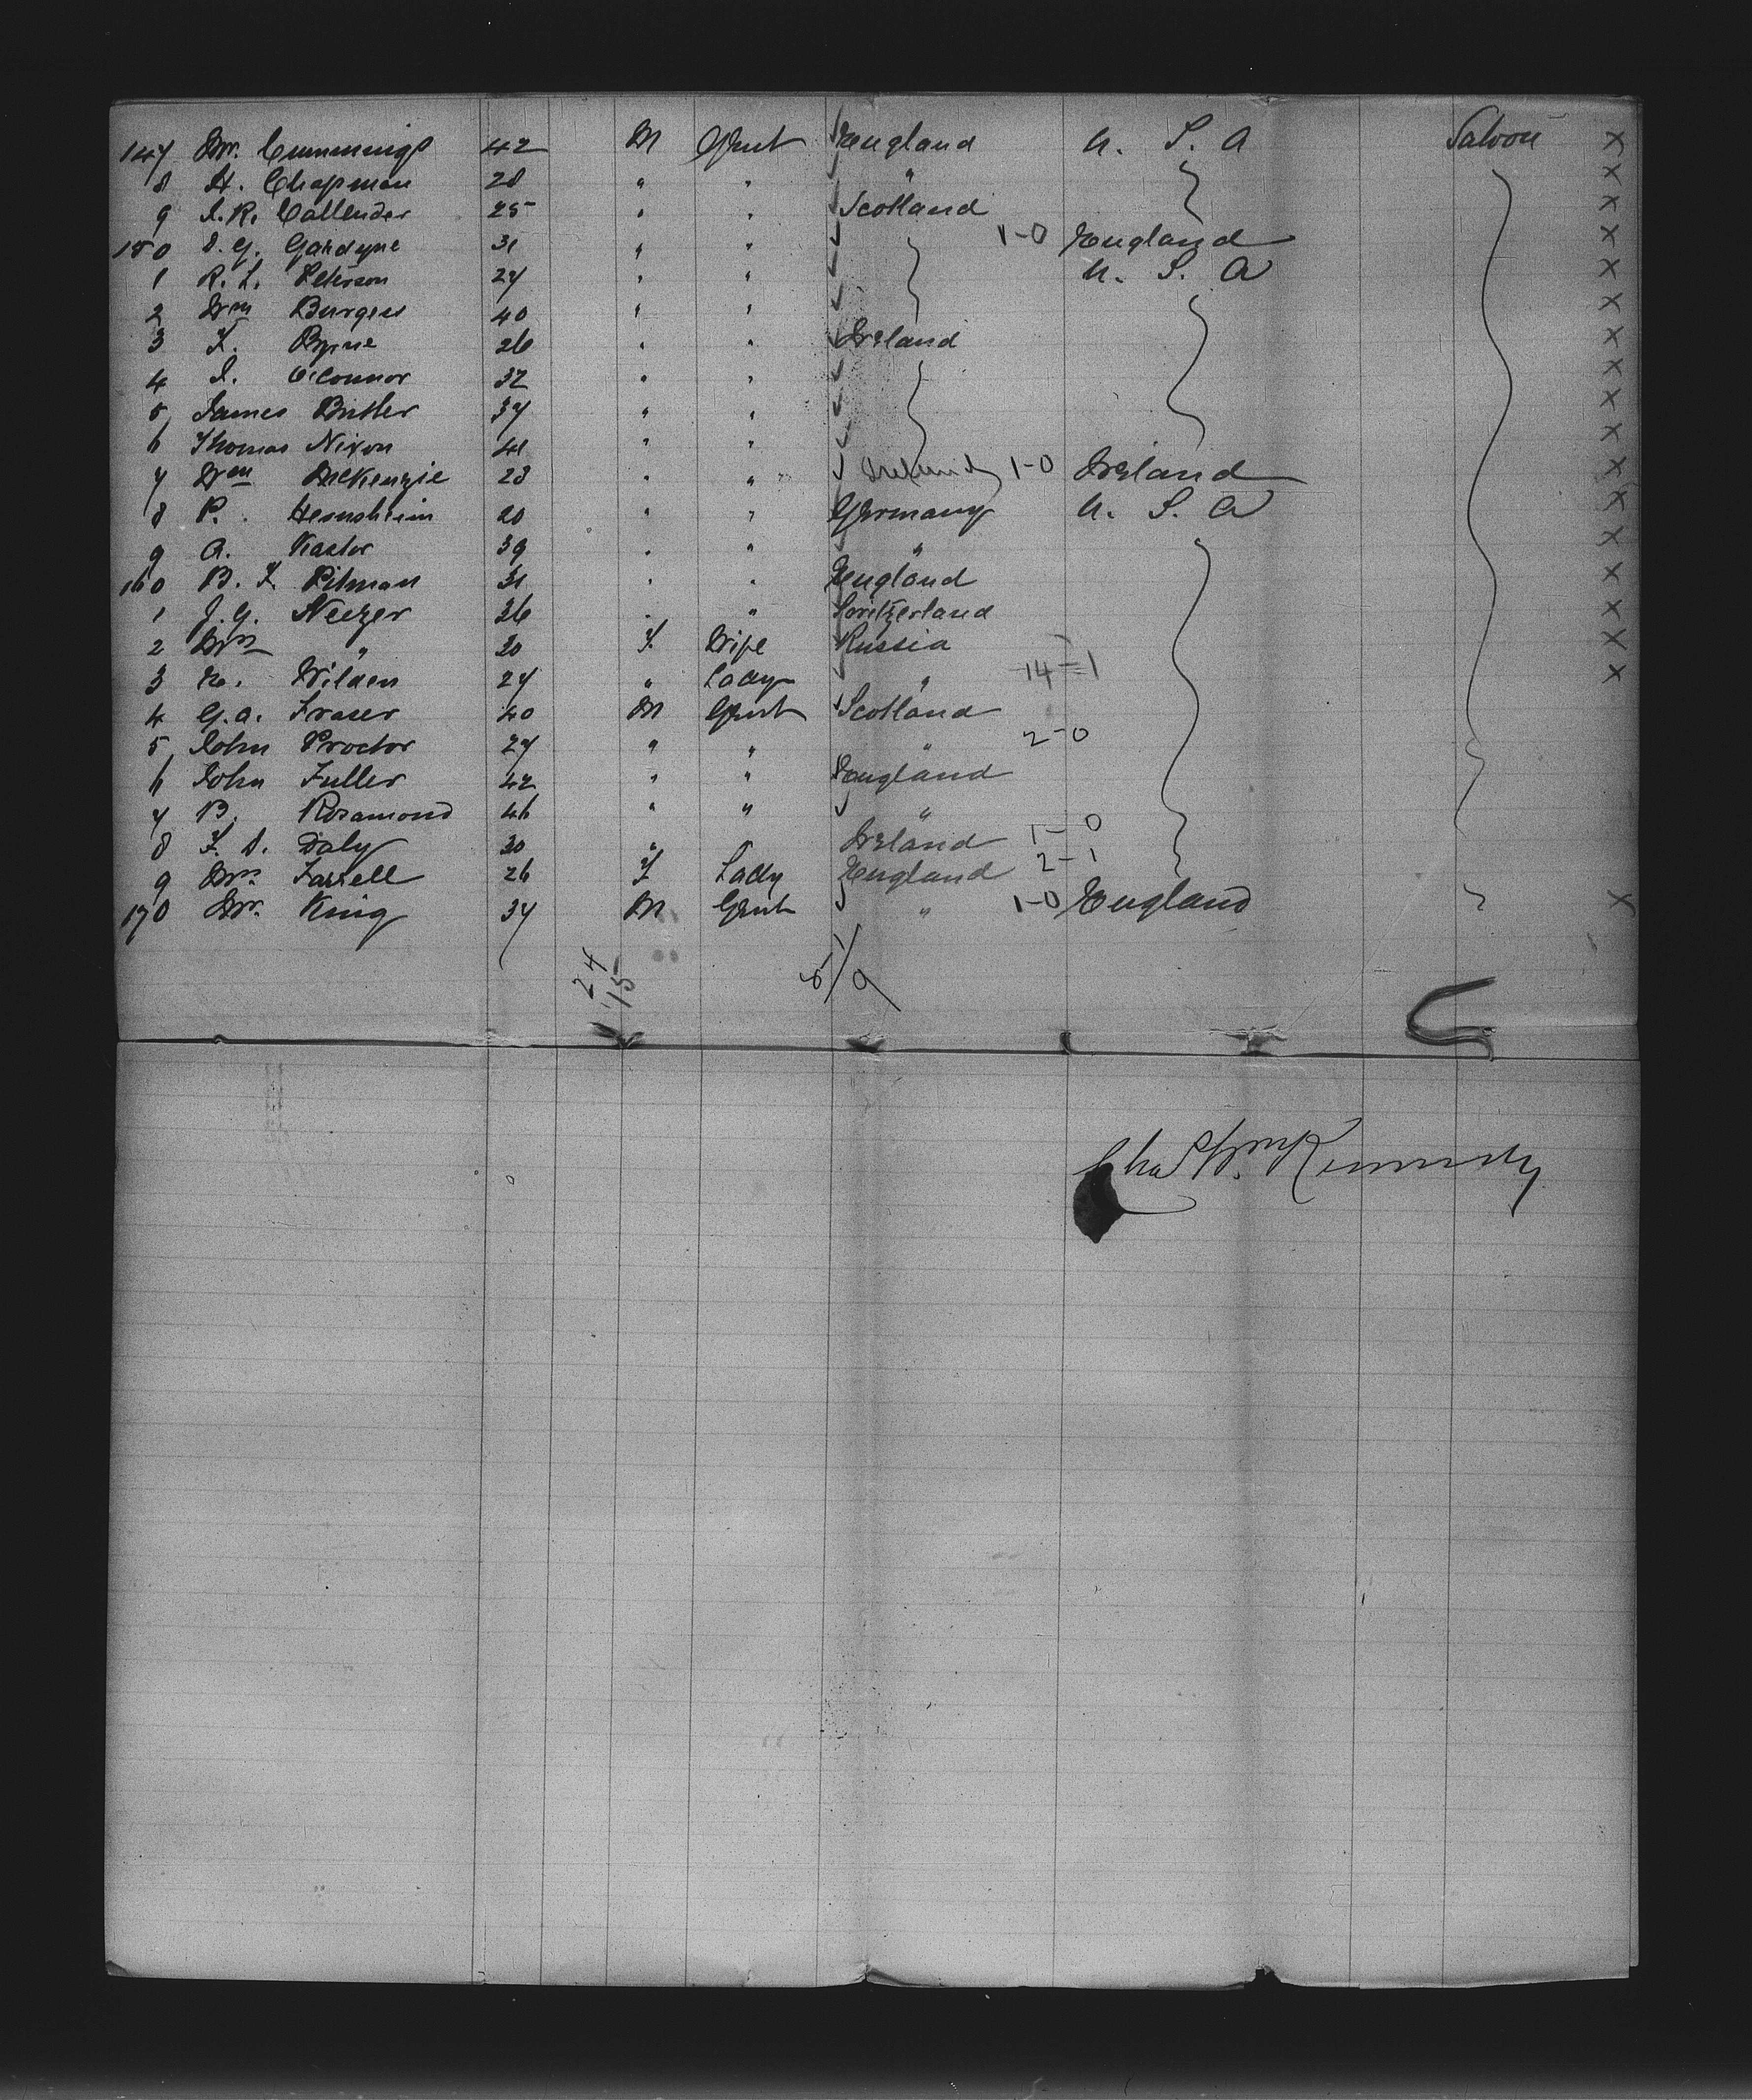 147 Mr. Cummings 42 M Gent England U. S. A Saloon X
8 H. Chapman 28 " " " X
9 J. R. Callender 25 " " Scotland X
150 D. G. Gardyne 31 " " 1-0 England X
1 R. L. Peterson 27 " " U. S. A X
2 Wm Burgess 40 " " X
3 T. Byrne 26 " " Ireland X
4 J. O'Connor 32 " " X
5 James Butler 37 " " X
6 Thomas Nixon 41 " " X
7 Wm McKenzie 23 " " Ireland 1-0 Ireland X
8 P. Hernsheim 20 " " Germany U. S. A X
9 A. Kastor 39 " " " X
160 B. F. Pitman 31 " " England X
1 J. G. Neezer 36 " " Switzerland X
2 Mrs " 30 F. Wife Russia X
3 E. Wilden 27 " Lady " 14=1 X
4 G. A. Fraser 40 M Gent Scotland
5 John Proctor 27 " " " 2-0
6 John Fuller 42 " " England
7 B. Rosamond 46 " " "
8 F. D. Daly 30 " Ireland 1-0
9 Mrs. Farrell 26 F Lady England 2-1
170 Mr. King 37 M Gent " 1-0 England X
24
15
Chas Wm Kennedy